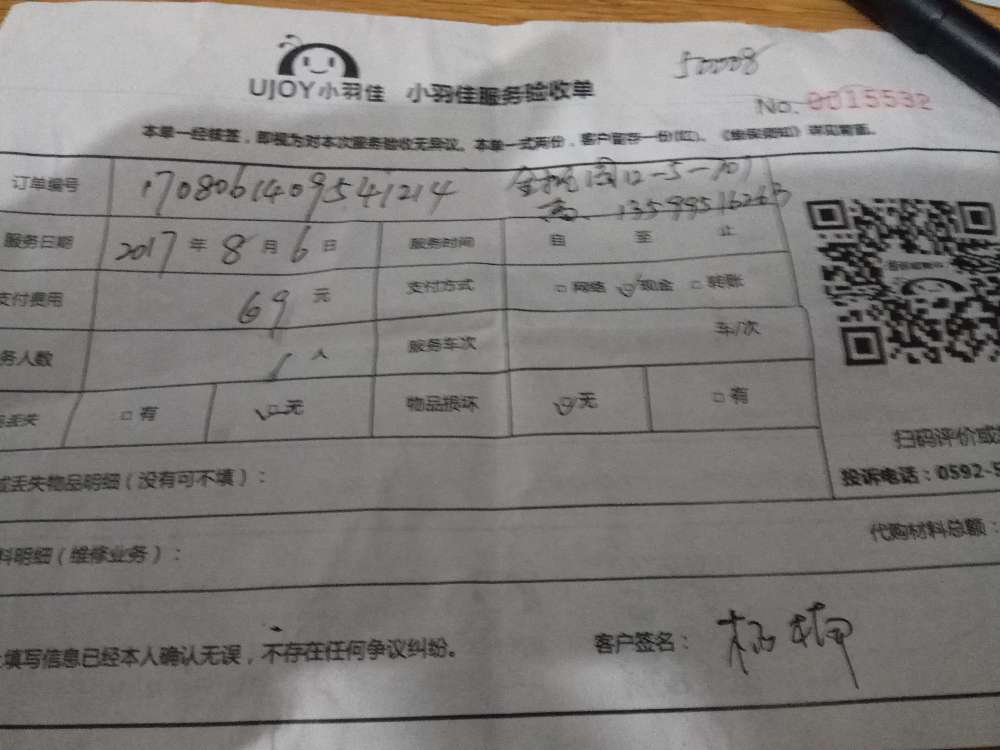 50008
UJOY小羽佳 小羽佳服务验收单
No. 0015532
本单一经核签，即视为对本次服务验收无异议。本单一式两份，客户留存一份(红)。
订单编号 1708061409541214 12-5-701
服务日期 2017年8月6日 服务时间 自 至 止
支付费用 69元 支付方式 □网络 ☑现金 □转账
务人数 1人 服务车次 车/次
丢失 □有 ☑无 物品损坏 ☑无 □有
扫码评价或
投诉电话：0592-5
或丢失物品明细（没有可不填）：
料明细（维修业务）： 代购材料总额：
填写信息已经本人确认无误，不存在任何争议纠纷。 客户签名：